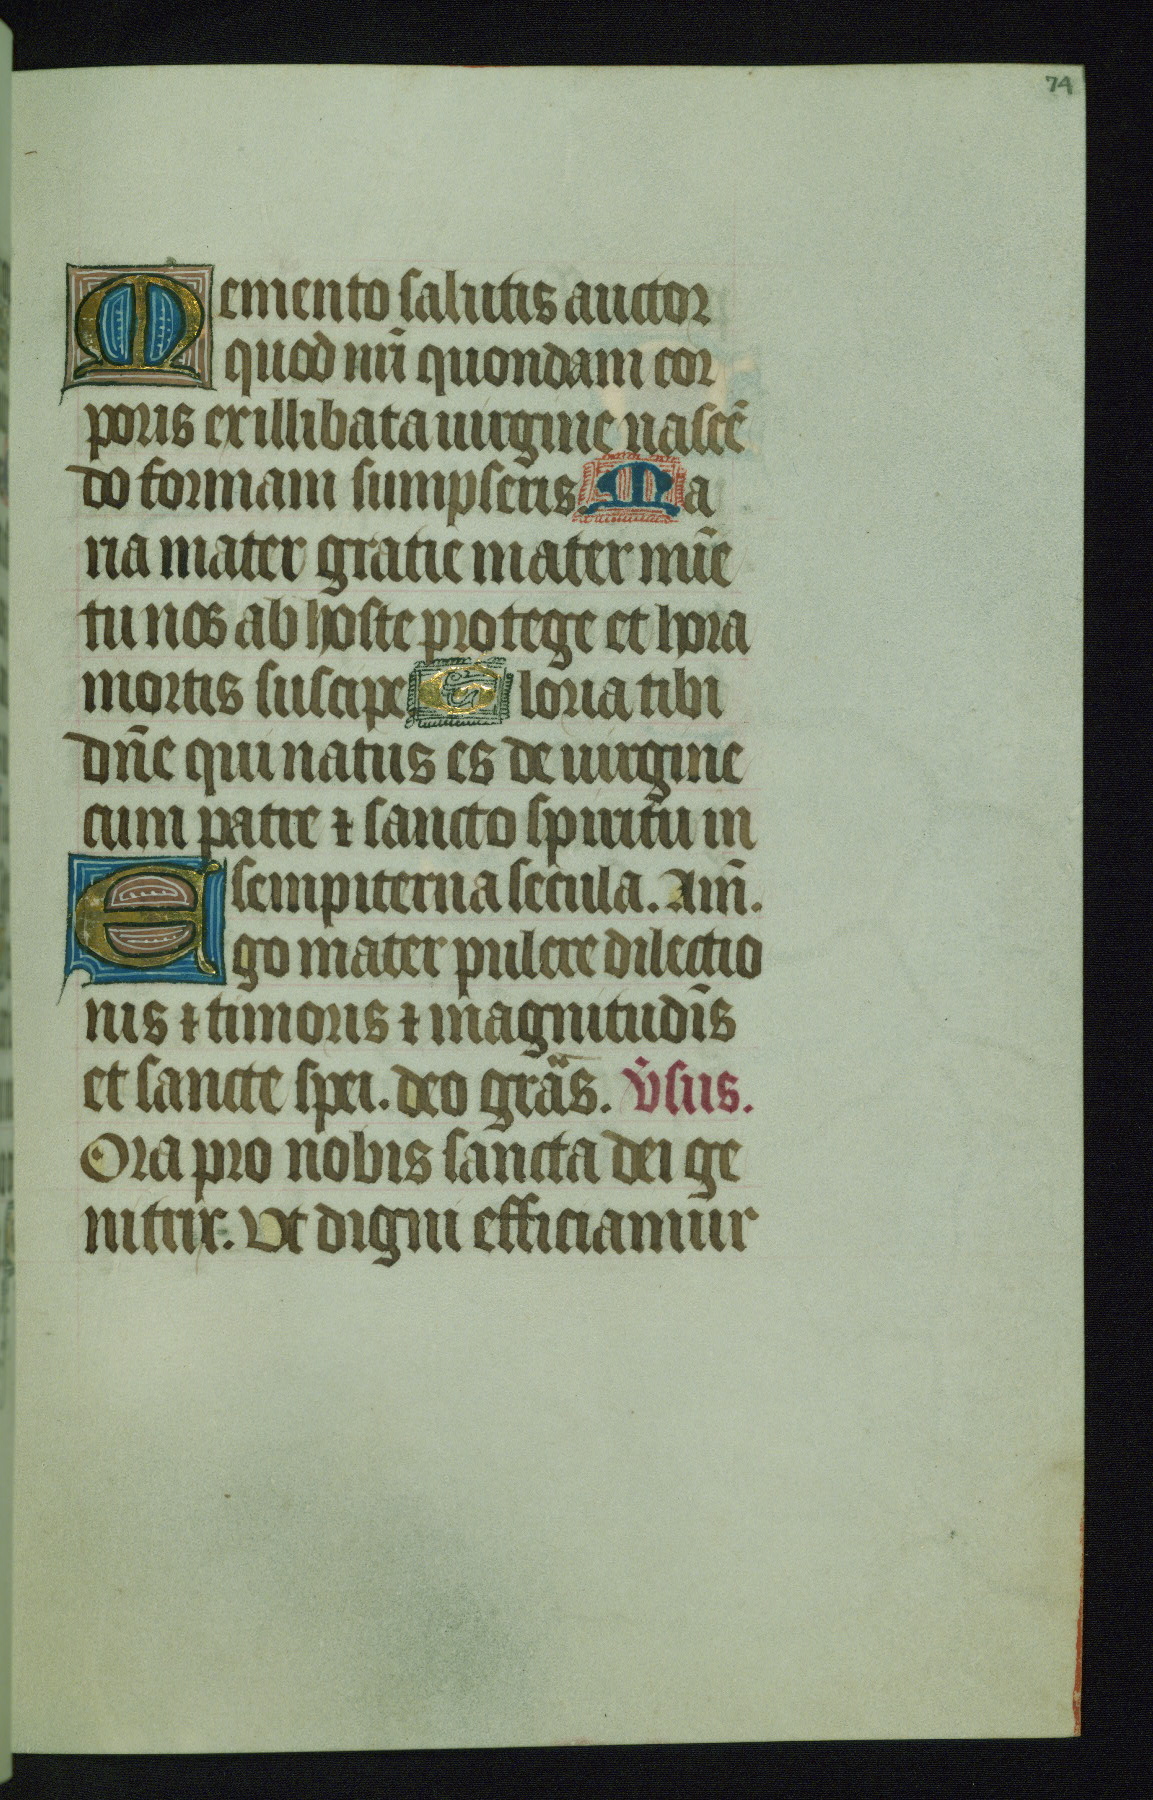 74
Memento salutis auctor
quod nr̄i quondam cor
poris ex illibata uirgine nascē
do formam sumpseris. Ma
ria mater gratie mater mīe
tu nos ab hoste protege et hora
mortis suscipe Gloria tibi
dn̄e qui natus es de uirgine
cum patre ⁊ sancto spiritu in
sempiterna secula. Am̄.
Ego mater pulcre dilectio
nis ⁊ timoris ⁊ magnitudīs
et sancte spei. deo grās. v̄sus.
Ora pro nobis sancta dei ge
nitrix. Ut digni efficiamur